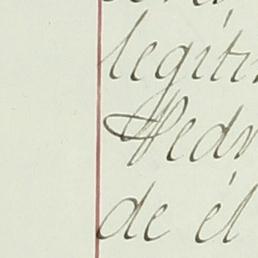 legíti
Pedr
de él